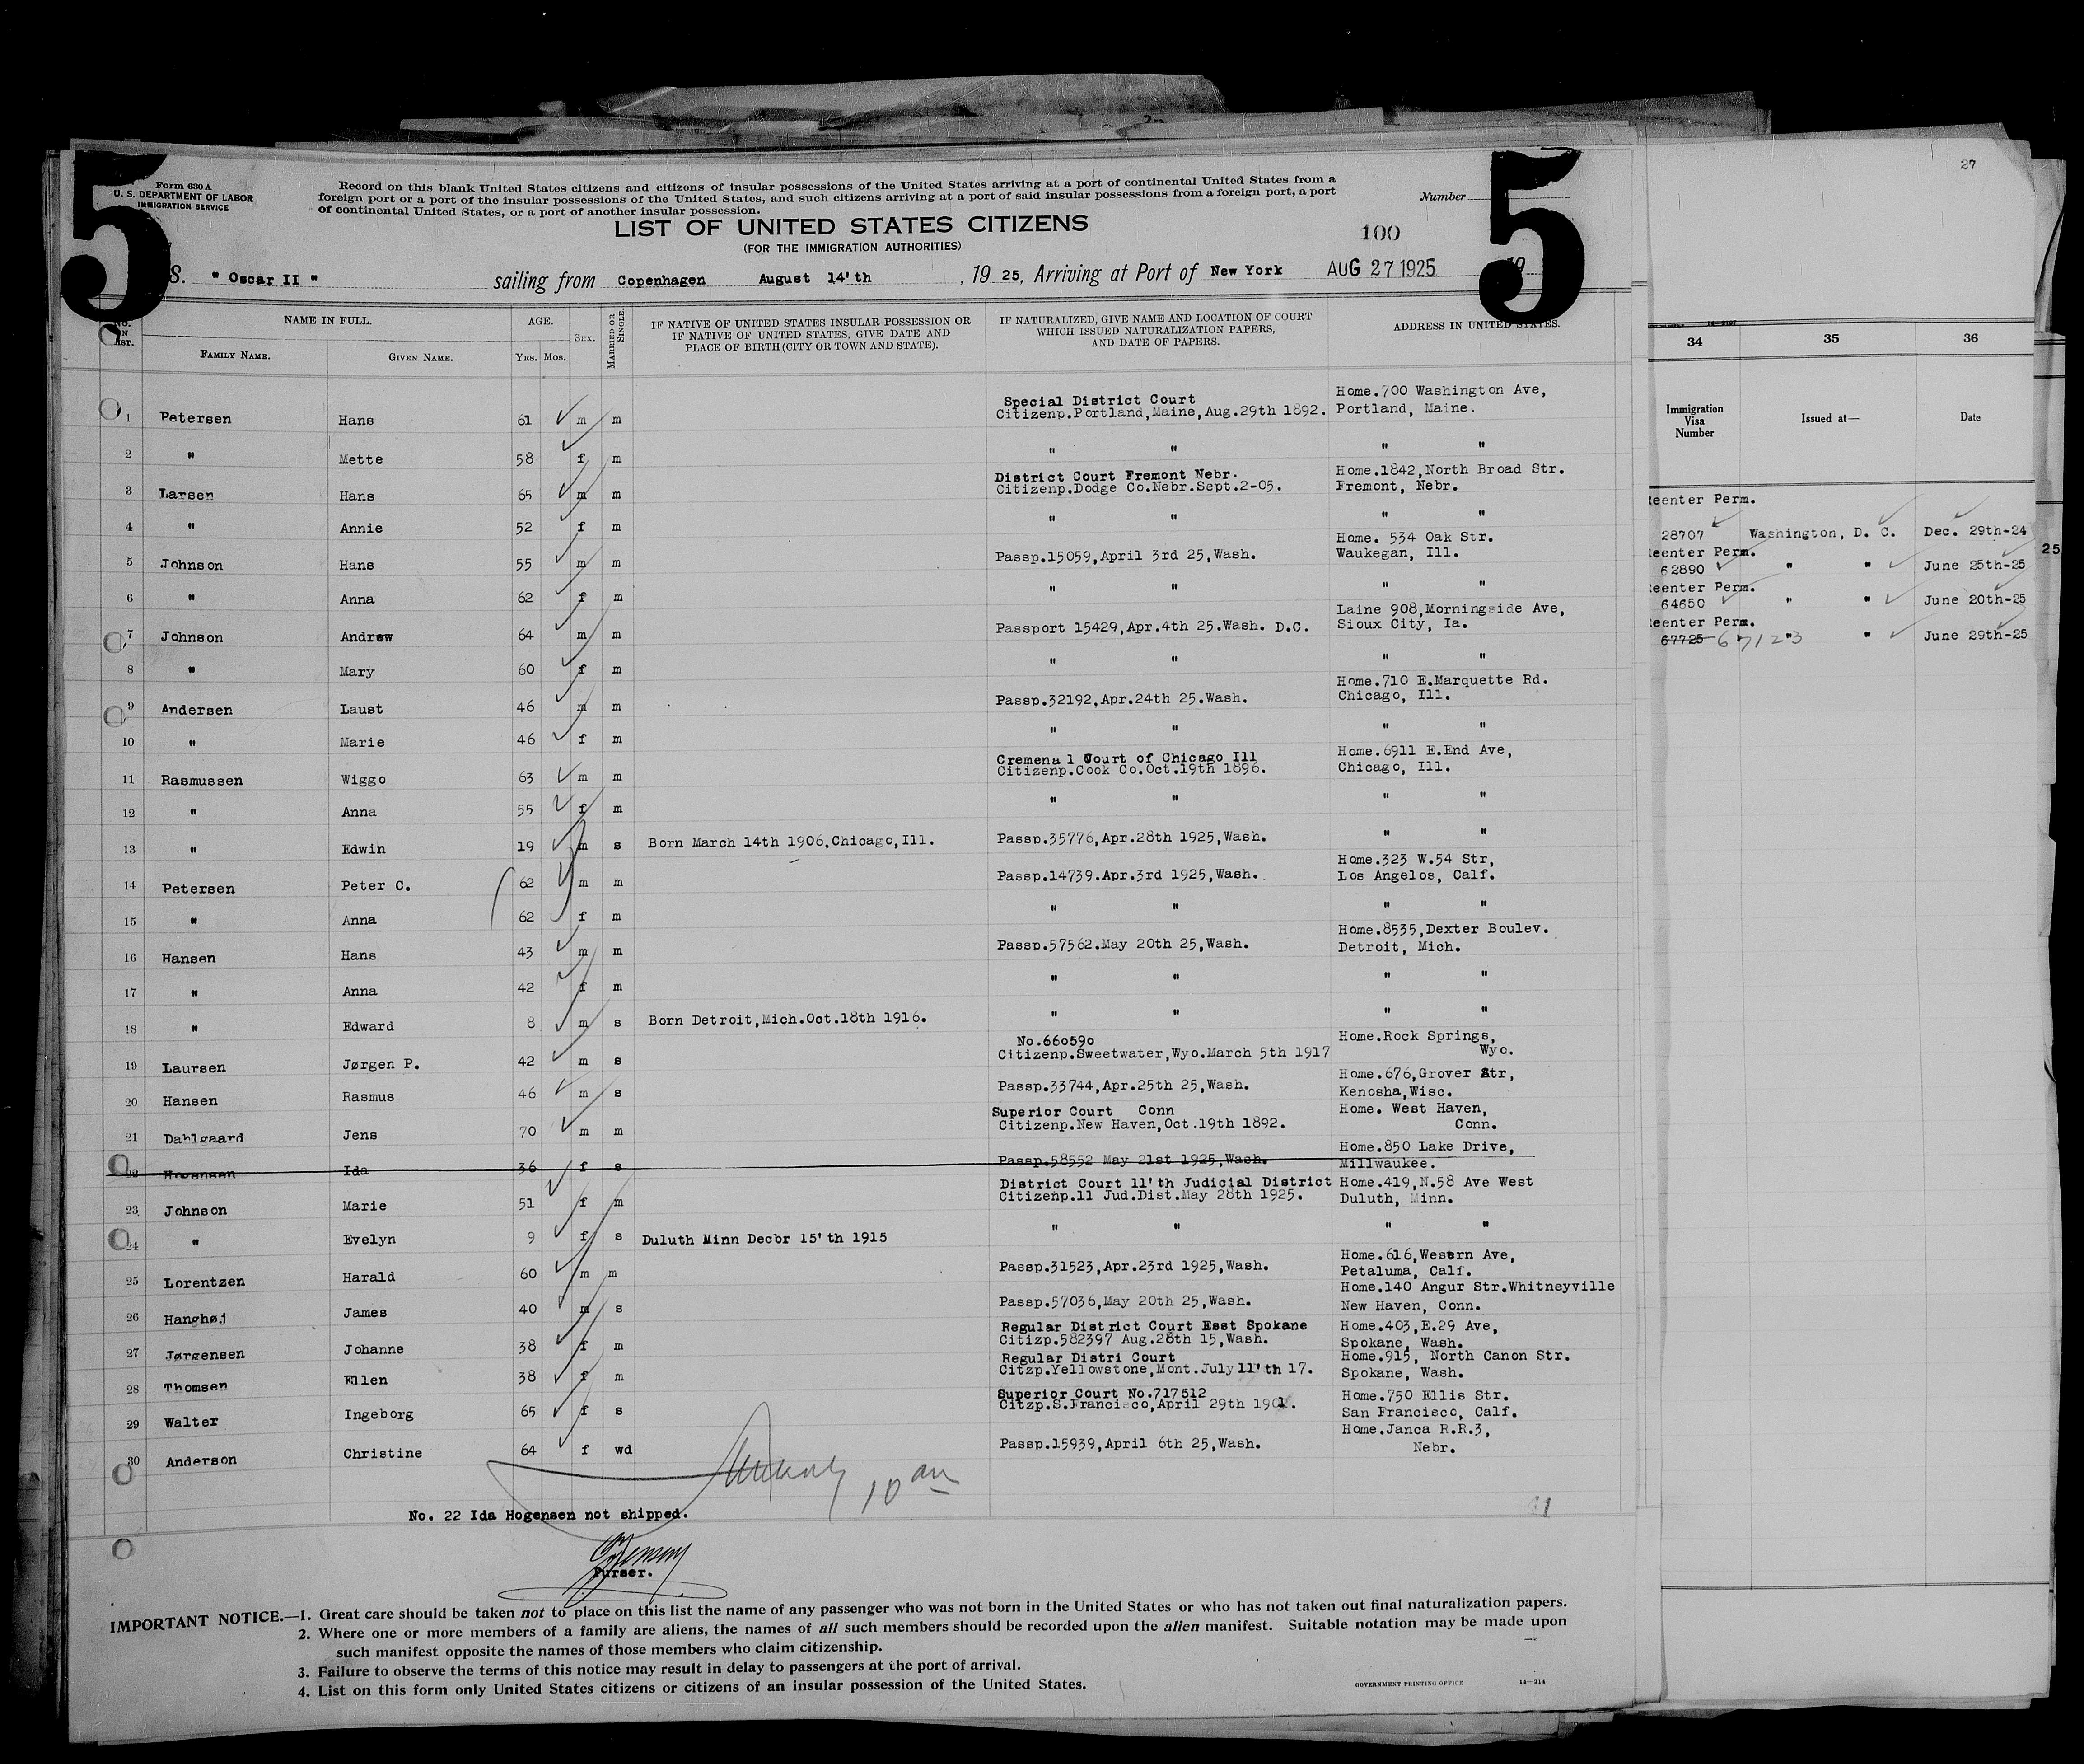 5
5
27
Form 630 A
U. S. DEPARTMENT OF LABOR
IMMIGRATION SERVICE
Record on this blank United States citizens and citizens of insular possessions of the United States arriving at a port of continental United States from a
foreign port or a port of the insular possessions of the United States, and such citizens arriving at a port of said insular possessions from a foreign port, a port
of continental United States, or a port of another insular possession.
Number
LIST OF UNITED STATES CITIZENS
(FOR THE IMMIGRATION AUTHORITIES)
100
S. " Oscar II " sailing from Copenhagen August 14'th , 19 25, Arriving at Port of New York AUG 27 1925 19
NO. ON LIST. NAME IN FULL. AGE. SEX. MARRIED OR SINGLE. IF NATIVE OF UNITED STATES INSULAR POSSESSION OR IF NATIVE OF UNITED STATES, GIVE DATE AND PLACE OF BIRTH (CITY OR TOWN AND STATE). IF NATURALIZED, GIVE NAME AND LOCATION OF COURT WHICH ISSUED NATURALIZATION PAPERS, AND DATE OF PAPERS. ADDRESS IN UNITED STATES.
FAMILY NAME. GIVEN NAME. YRS. MOS.
Special District Court Home.700 Washington Ave,
1 Petersen Hans 61 m m Citizenp.Portland,Maine,Aug.29th 1892. Portland, Maine.
2 " Mette 58 f m " " " "
District Court Fremont Nebr. Home.1842,North Broad Str.
3 Larsen Hans 65 m m Citizenp.Dodge Co.Nebr.Sept.2-05. Fremont, Nebr.
4 " Annie 52 f m " " " "
Home. 534 Oak Str.
5 Johnson Hans 55 m m Passp.15059,April 3rd 25,Wash. Waukegan, Ill.
6 " Anna 62 f m " " " "
Laine 908,Morningside Ave,
7 Johnson Andrew 64 m m Passport 15429,Apr.4th 25.Wash. D.C. Sioux City, Ia.
8 " Mary 60 f m " " " "
Home.710 E.Marquette Rd.
9 Andersen Laust 46 m m Passp.32192,Apr.24th 25.Wash. Chicago, Ill.
10 " Marie 46 f m " " " "
Cremenal Court of Chicago Ill Home.6911 E.End Ave,
11 Rasmussen Wiggo 63 m m Citizenp.Cook Co.Oct.19th 1896. Chicago, Ill.
12 " Anna 55 f m " " " "
13 " Edwin 19 m s Born March 14th 1906,Chicago,Ill. Passp.35776,Apr.28th 1925,Wash. " "
Home.323 W.54 Str,
14 Petersen Peter C. 62 m m Passp.14739.Apr.3rd 1925,Wash. Los Angelos, Calf.
15 " Anna 62 f m " " " "
Home.8535,Dexter Boulev.
16 Hansen Hans 43 m m Passp.57562.May 20th 25,Wash. Detroit, Mich.
17 " Anna 42 f m " " " "
18 " Edward 8 m s Born Detroit,Mich.Oct.18th 1916. " " " "
No.660590 Home.Rock Springs,
19 Laursen Jørgen P. 42 m s Citizenp.Sweetwater,Wyo.March 5th 1917 Wyo.
Home.676,Grover Str,
20 Hansen Rasmus 46 m s Passp.33744,Apr.25th 25,Wash. Kenosha,Wisc.
Superior Court Conn Home. West Haven,
21 Dahlgaard Jens 70 m m Citizenp.New Haven,Oct.19th 1892. Conn.
Home.850 Lake Drive,
22 Hogensen Ida 36 f s Passp.58552 May 21st 1925,Wash. Millwaukee.
District Court 11'th Judicial District Home.419,N.58 Ave West
23 Johnson Marie 51 f m Citizenp.11 Jud.Dist.May 28th 1925. Duluth, Minn.
24 " Evelyn 9 f s Duluth Minn Decbr 15'th 1915 " " " "
Home.616,Western Ave,
25 Lorentzen Harald 60 m m Passp.31523,Apr.23rd 1925,Wash. Petaluma, Calf.
Home.140 Angur Str.Whitneyville
26 Hanghøj James 40 m s Passp.57036,May 20th 25,Wash. New Haven, Conn.
Regular District Court East Spokane Home.403,E.29 Ave,
27 Jørgensen Johanne 38 f m Citizp.582397 Aug.28th 15,Wash. Spokane, Wash.
Regular Distri Court Home.915, North Canon Str.
28 Thomsen Ellen 38 f m Citzp.Yellowstone,Mont.July 11'th 17. Spokane, Wash.
Superior Court No.717512 Home.750 Ellis Str.
29 Walter Ingeborg 65 f s Citzp.S.Francisco,April 29th 1901. San Francisco, Calf.
Home.Janca R.R.3,
30 Anderson Christine 64 f wd Passp.15939,April 6th 25,Wash. Nebr.
10 am
No. 22 Ida Hogensen not shipped.
Purser.
IMPORTANT NOTICE.—1. Great care should be taken not to place on this list the name of any passenger who was not born in the United States or who has not taken out final naturalization papers.
2. Where one or more members of a family are aliens, the names of all such members should be recorded upon the alien manifest. Suitable notation may be made upon
such manifest opposite the names of those members who claim citizenship.
3. Failure to observe the terms of this notice may result in delay to passengers at the port of arrival.
4. List on this form only United States citizens or citizens of an insular possession of the United States.
GOVERNMENT PRINTING OFFICE 14—314
34 35 36
Immigration Visa Number Issued at— Date
eenter Perm.
28707 Washington, D. C. Dec. 29th-24
eenter Perm.
62890 " " June 25th-25
eenter Perm.
64650 " " June 20th-25
eenter Perm.
67725 67123 " " June 29th-25
25